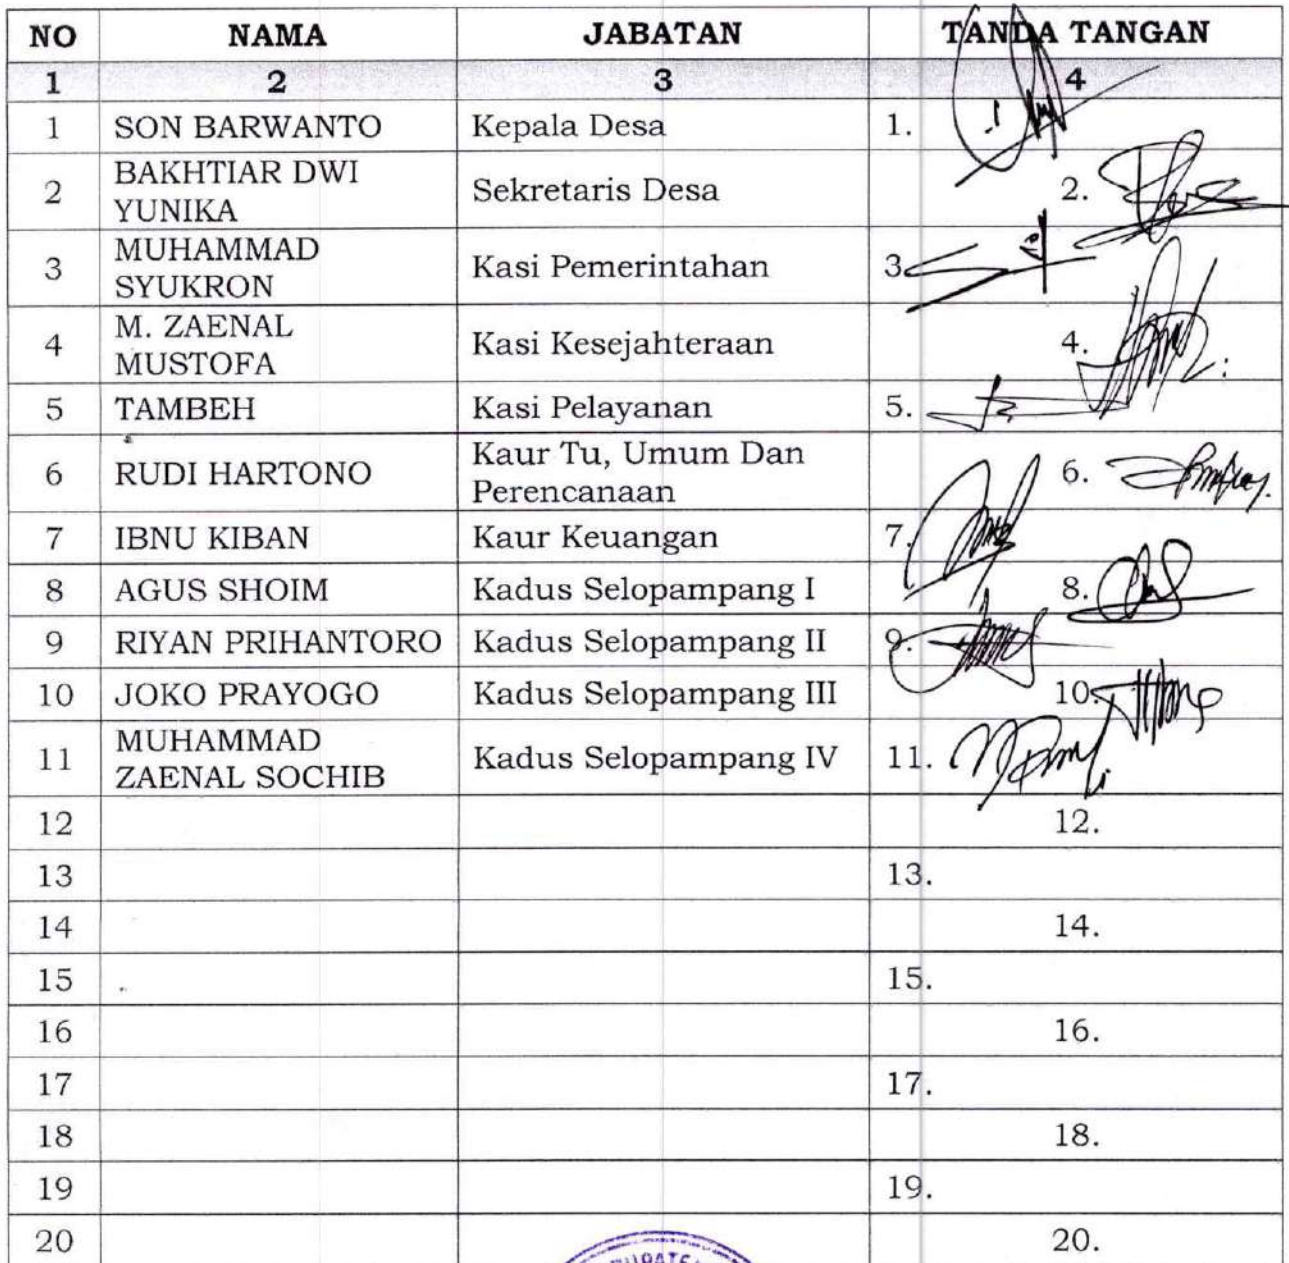 NO NAMA JABATAN TANDA TANGAN
1 2 3 4
1 SON BARWANTO Kepala Desa 1.
2 BAKHTIAR DWI YUNIKA Sekretaris Desa 2.
3 MUHAMMAD SYUKRON Kasi Pemerintahan 3.
4 M. ZAENAL MUSTOFA Kasi Kesejahteraan 4.
5 TAMBEH Kasi Pelayanan 5.
6 RUDI HARTONO Kaur Tu, Umum Dan Perencanaan 6.
7 IBNU KIBAN Kaur Keuangan 7.
8 AGUS SHOIM Kadus Selopampang I 8.
9 RIYAN PRIHANTORO Kadus Selopampang II 9.
10 JOKO PRAYOGO Kadus Selopampang III 10.
11 MUHAMMAD ZAENAL SOCHIB Kadus Selopampang IV 11.
12 12.
13 13.
14 14.
15 15.
16 16.
17 17.
18 18.
19 19.
20 20.